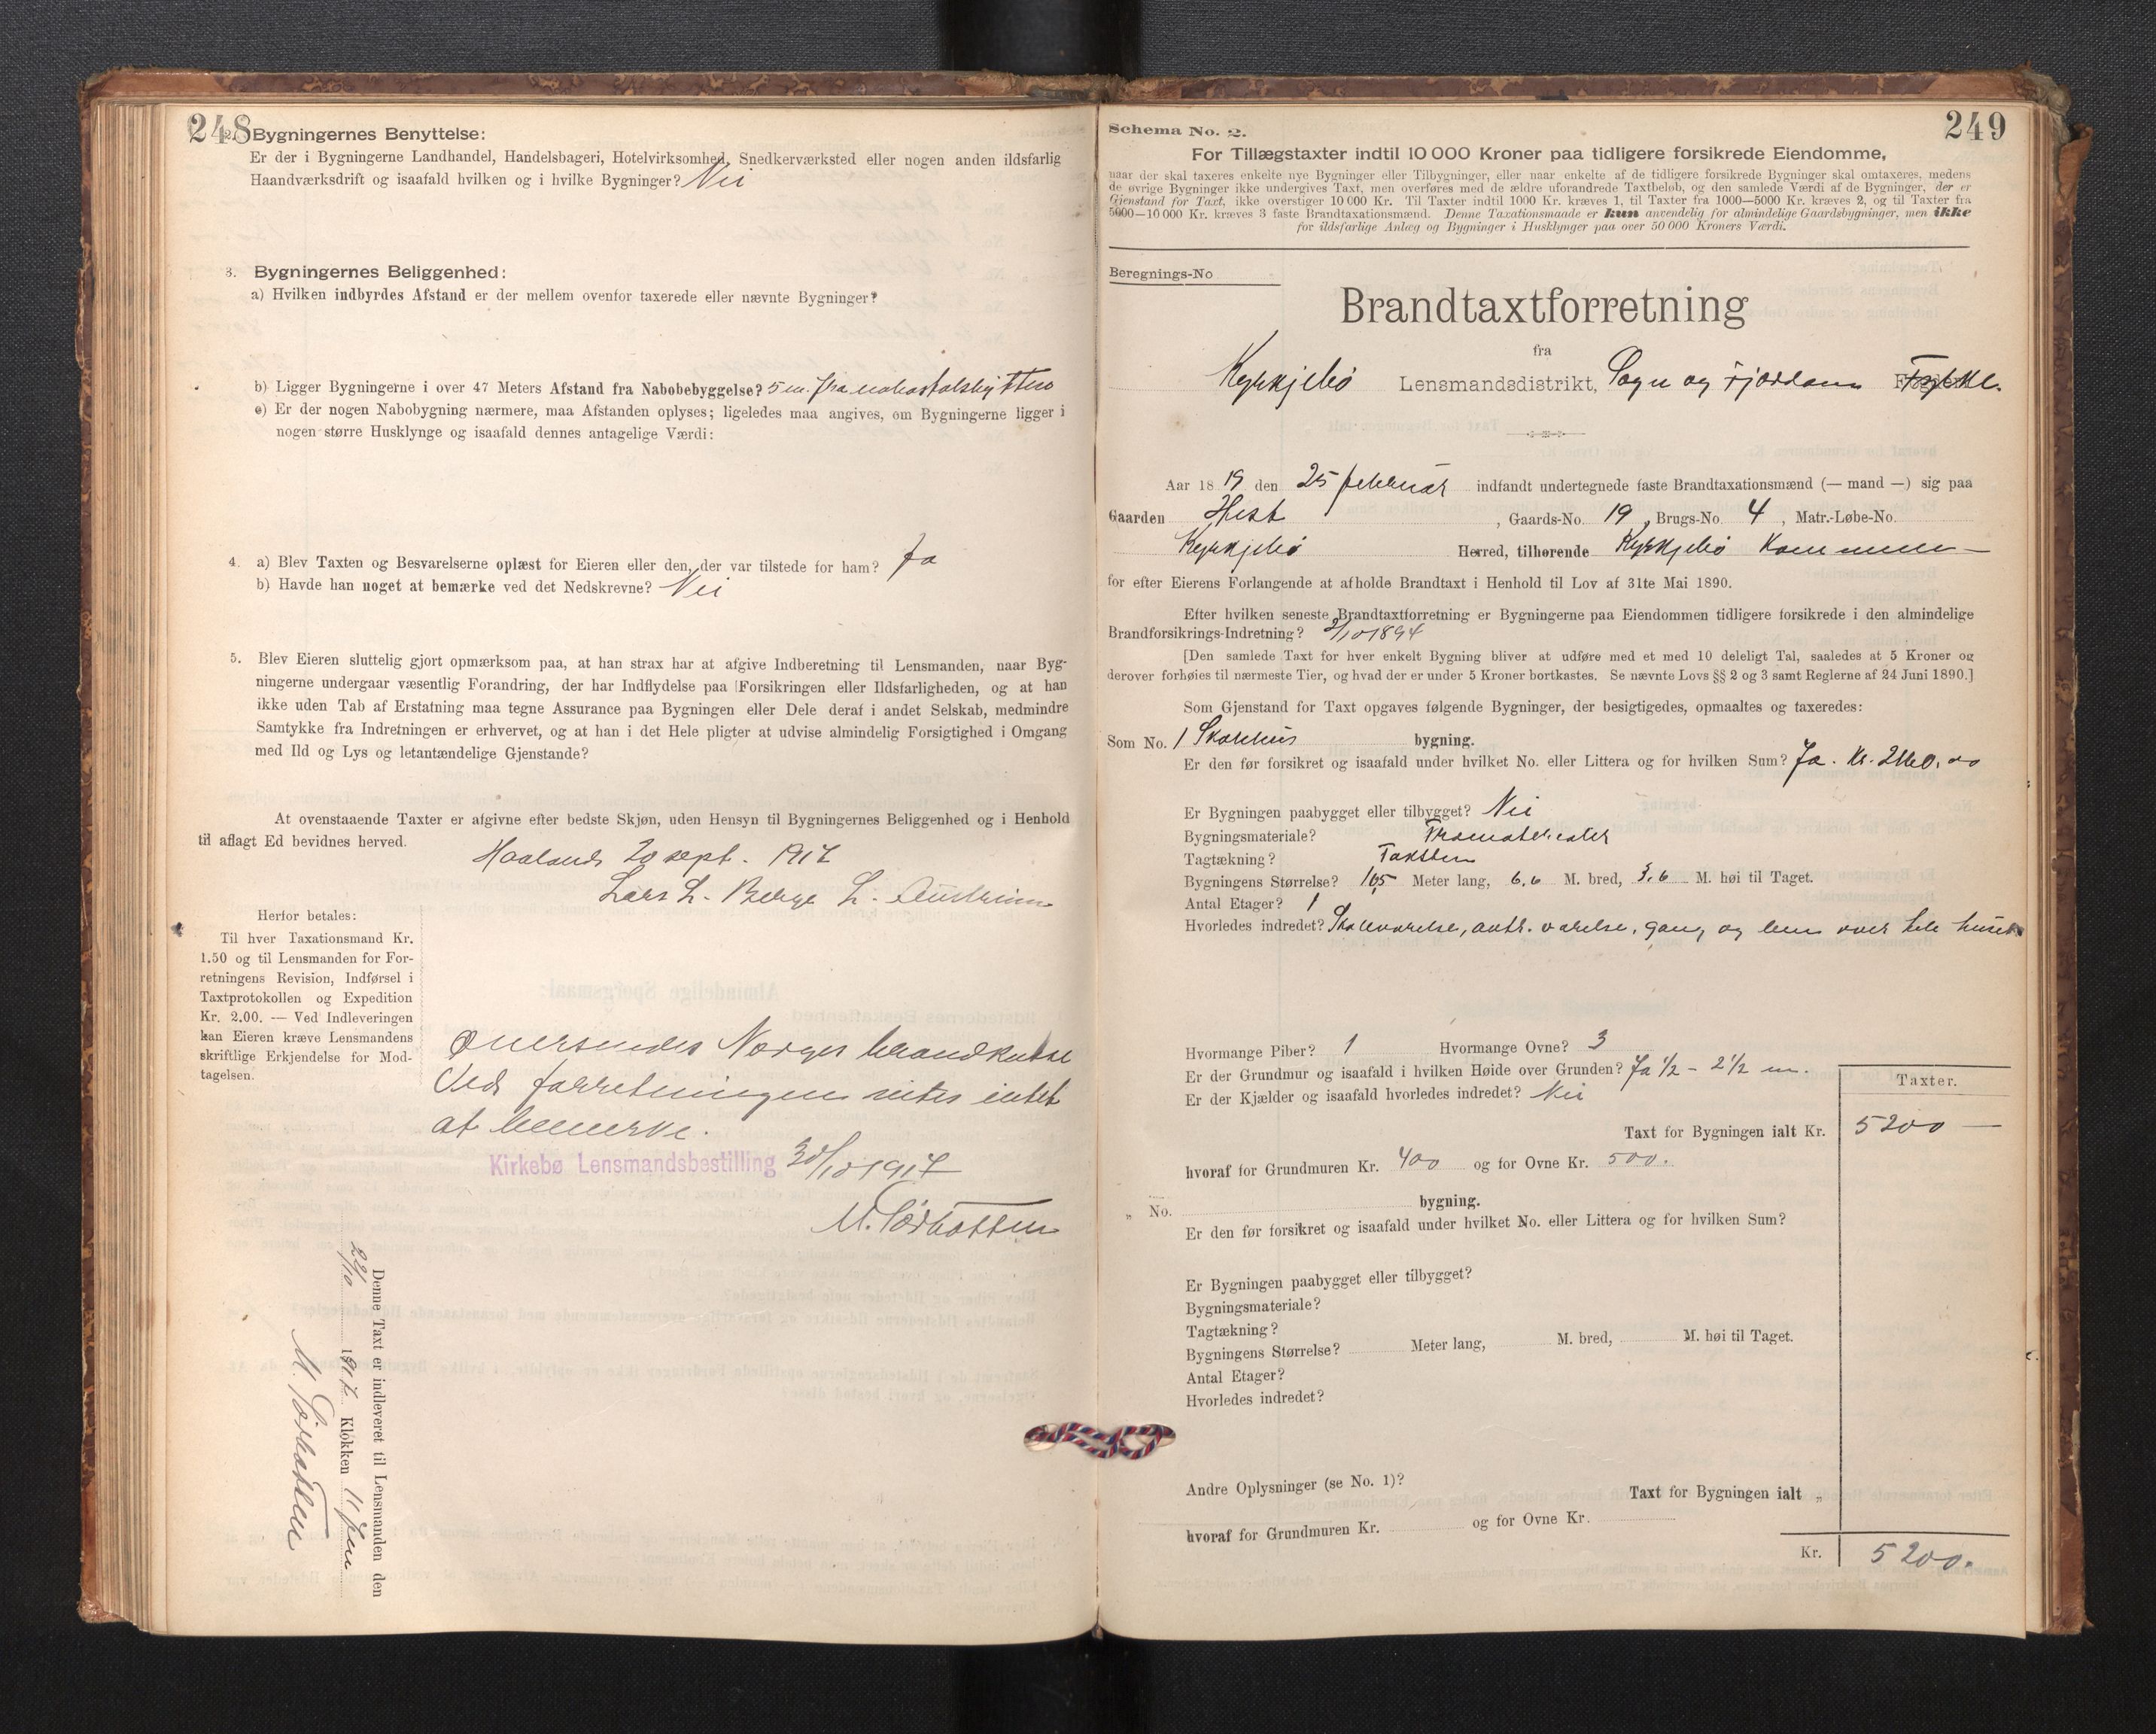 248
2. Bygningernes Benyttelse:
Er der i Bygningerne Landhandel, Handelsbageri, Hotelvirksomhed, Snedkerværksted eller nogen anden ildsfarlig
Haandværksdrift og isaafald hvilken og i hvilke Bygninger? Nei
3. Bygningernes Beliggenhed:
a) Hvilken indbyrdes Afstand er der mellem ovenfor taxerede eller nævnte Bygninger?
b) Ligger Bygningerne i over 47 Meters Afstand fra Nabobebyggelse? 5 m. fra
c) Er der nogen Nabobygning nærmere, maa Afstanden oplyses; ligeledes maa angives, om Bygningerne ligger i
nogen større Husklynge og isaafald dennes antagelige Værdi:
4. a) Blev Taxten og Besvarelserne oplæst for Eieren eller den, der var tilstede for ham? Ja
b) Havde han noget at bemærke ved det Nedskrevne? Nei
5. Blev Eieren sluttelig gjort opmærksom paa, at han strax har at afgive Indberetning til Lensmanden, naar Byg-
ningerne undergaar væsentlig Forandring, der har Indflydelse paa Forsikringen eller Ildsfarligheden, og at han
ikke uden Tab af Erstatning maa tegne Assurance paa Bygningen eller Dele deraf i andet Selskab, medmindre
Samtykke fra Indretningen er erhvervet, og at han i det Hele pligter at udvise almindelig Forsigtighed i Omgang
med Ild og Lys og letantændelige Gjenstande?
At ovenstaaende Taxter er afgivne efter bedste Skjøn, uden Hensyn til Bygningernes Beliggenhed og i Henhold
til aflagt Ed bevidnes herved.
Haaland 20 sept. 1917
Lars L. Berge L. Austreim
Herfor betales:
Til hver Taxationsmand Kr.
1.50 og til Lensmanden for For-
retningens Revision, Indførsel i
Taxtprotokollen og Expedition
Kr. 2.00. — Ved Indleveringen
kan Eieren kræve Lensmandens
skriftlige Erkjendelse for Mod-
tagelsen.
Oversendes Norges brandkasse
Ved forretningen vites intet
at bemerke.
Kirkebø Lensmandsbestilling 30/10 1917
M. Sørbotten
Denne Taxt er indleveret til Lensmanden den
22/10 1917 Klokken 11 fm
M. Sørbotten
249
Schema No. 2.
For Tillægstaxter indtil 10 000 Kroner paa tidligere forsikrede Eiendomme,
naar der skal taxeres enkelte nye Bygninger eller Tilbygninger, eller naar enkelte af de tidligere forsikrede Bygninger skal omtaxeres, medens
de øvrige Bygninger ikke undergives Taxt, men overføres med de ældre uforandrede Taxtbeløb, og den samlede Værdi af de Bygninger, der er
Gjenstand for Taxt, ikke overstiger 10 000 Kr. Til Taxter indtil 1000 Kr. kræves 1, til Taxter fra 1000—5000 Kr. kræves 2, og til Taxter fra
5000—10 000 Kr. kræves 3 faste Brandtaxationsmænd. Denne Taxationsmaade er kun anvendelig for almindelige Gaardsbygninger, men ikke
for ildsfarlige Anlæg og Bygninger i Husklynger paa over 50 000 Kroners Værdi.
Beregnings-No
Brandtaxtforretning
fra
Kyrkjebø Lensmandsdistrikt, Sogn og Fjordane Fylke.
Aar 18 19 den 25 februar indfandt undertegnede faste Brandtaxationsmænd (— mand —) sig paa
Gaarden Hest, Gaards-No. 19, Brugs-No. 4, Matr.-Løbe-No.
Kyrkjebø Herred, tilhørende Kyrkjebø Kommune
for efter Eierens Forlangende at afholde Brandtaxt i Henhold til Lov af 31te Mai 1890.
Efter hvilken seneste Brandtaxtforretning er Bygningerne paa Eiendommen tidligere forsikrede i den almindelige
Brandforsikrings-Indretning? 2/10 1894
[Den samlede Taxt for hver enkelt Bygning bliver at udføre med et med 10 deleligt Tal, saaledes at 5 Kroner og
derover forhøies til nærmeste Tier, og hvad der er under 5 Kroner bortkastes. Se nævnte Lovs §§ 2 og 3 samt Reglerne af 24 Juni 1890.]
Som Gjenstand for Taxt opgaves følgende Bygninger, der besigtigedes, opmaaltes og taxeredes:
Som No. 1 Skolehus bygning.
Er den før forsikret og isaafald under hvilket No. eller Littera og for hvilken Sum? Ja. Kr.
Er Bygningen paabygget eller tilbygget? Nei
Bygningsmateriale? Træmaterialer
Tagtækning? Taksten
Bygningens Størrelse? 10,5 Meter lang, 6,6 M. bred, 3,6 M. høi til Taget.
Antal Etager? 1
Hvorledes indredet? Skoleværelse, andr. værelse, gang og lem over hele huset
Hvormange Piber? 1 Hvormange Ovne? 3
Er der Grundmur og isaafald i hvilken Høide over Grunden? Ja 1/2 – 2 1/2 m.
Er der Kjælder og isaafald hvorledes indredet? Nei
Taxter.
Taxt for Bygningen ialt Kr. 5200 —
hvoraf for Grundmuren Kr. 400 og for Ovne Kr. 500.
„ No. bygning.
Er den før forsikret og isaafald under hvilket No. eller Littera og for hvilken Sum?
Er Bygningen paabygget eller tilbygget?
Bygningsmateriale?
Tagtækning?
Bygningens Størrelse? Meter lang, M. bred, M. høi til Taget.
Antal Etager?
Hvorledes indredet?
Andre Oplysninger (se No. 1)?
Taxt for Bygningen ialt „
hvoraf for Grundmuren Kr. og for Ovne Kr.
Kr. 5200.